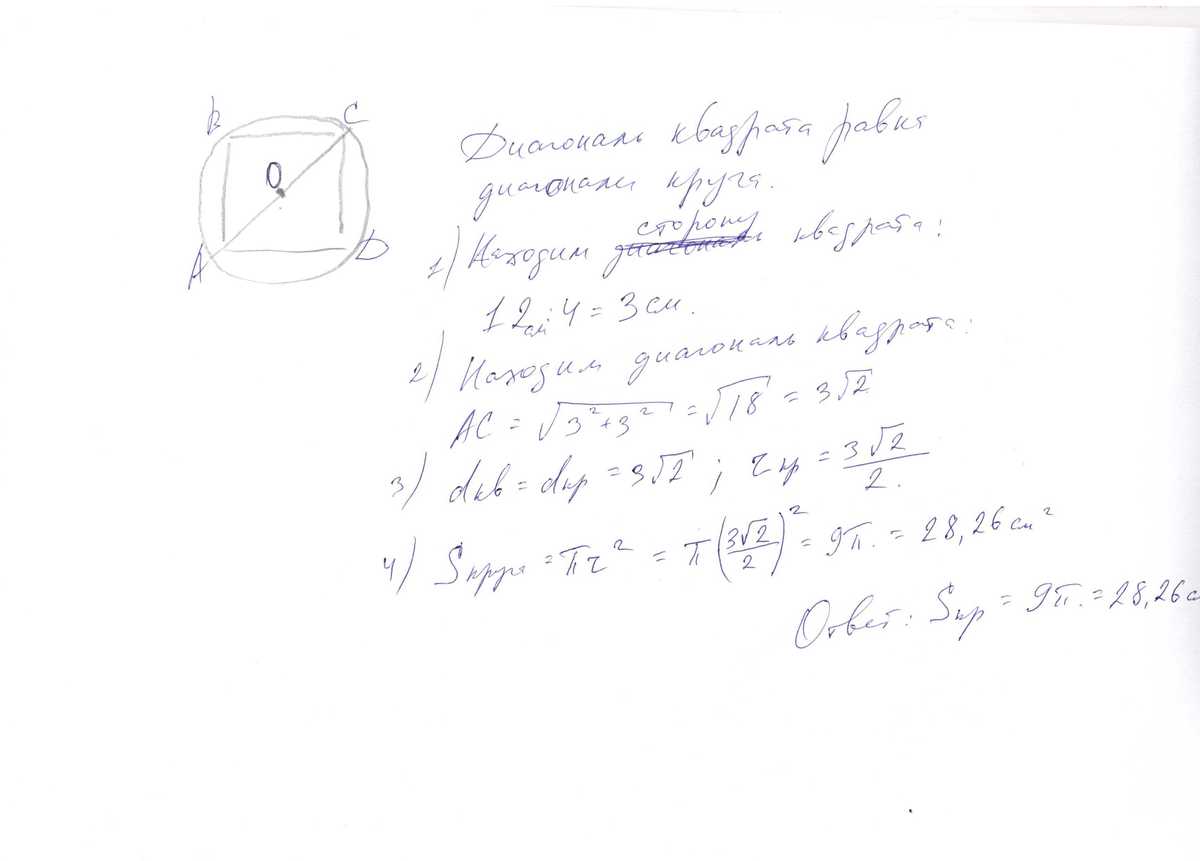 B C
O
A D
Диагональ квадрата равна
диагонали круга.
1) Находим сторону квадрата:
12см:4 = 3 см.
2) Находим диагональ квадрата:
AC = √(3²+3²) = √18 = 3√2
3) dкв = dкр = 3√2 ; rкр = 3√2/2.
4) Sкруга = πr² = π(3√2/2)² = 9π. = 28,26 см²
Ответ: Sкр = 9π. = 28,26 с